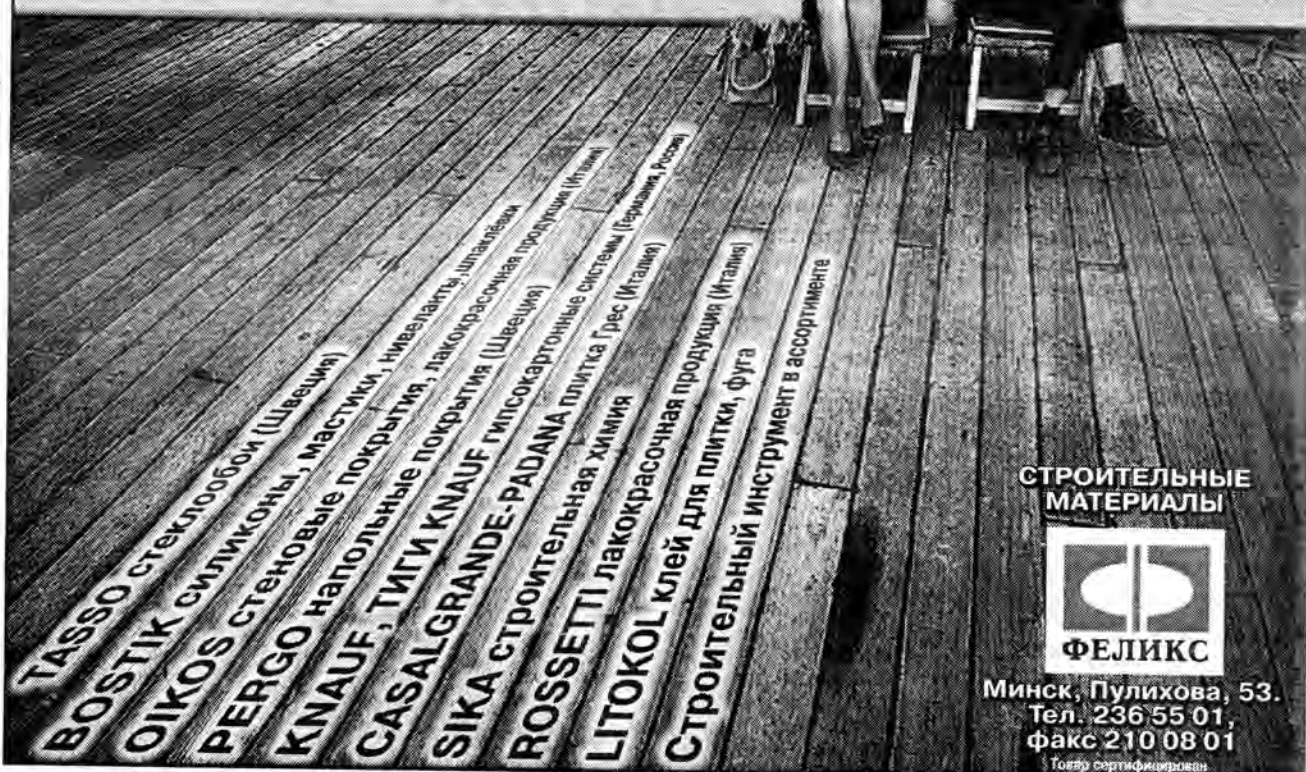 TASSO стеклообои (Швеция)
BOSTIK силиконы, мастики, нивеланты, шпаклёвки
OIKOS стеновые покрытия, лакокрасочная продукция (Италия)
PERGO напольные покрытия (Швеция)
KNAUF, ТИГИ KNAUF гипсокартонные системы (Германия, Россия)
CASALGRANDE-PADANA плитка Грес (Италия)
SIKA строительная химия
ROSSETTI лакокрасочная продукция (Италия)
LITOKOL клей для плитки, фуга
Строительный инструмент в ассортименте
СТРОИТЕЛЬНЫЕ
МАТЕРИАЛЫ
ФЕЛИКС
Минск, Пулихова, 53.
Тел. 236 55 01,
факс 210 08 01
Товар сертифицирован